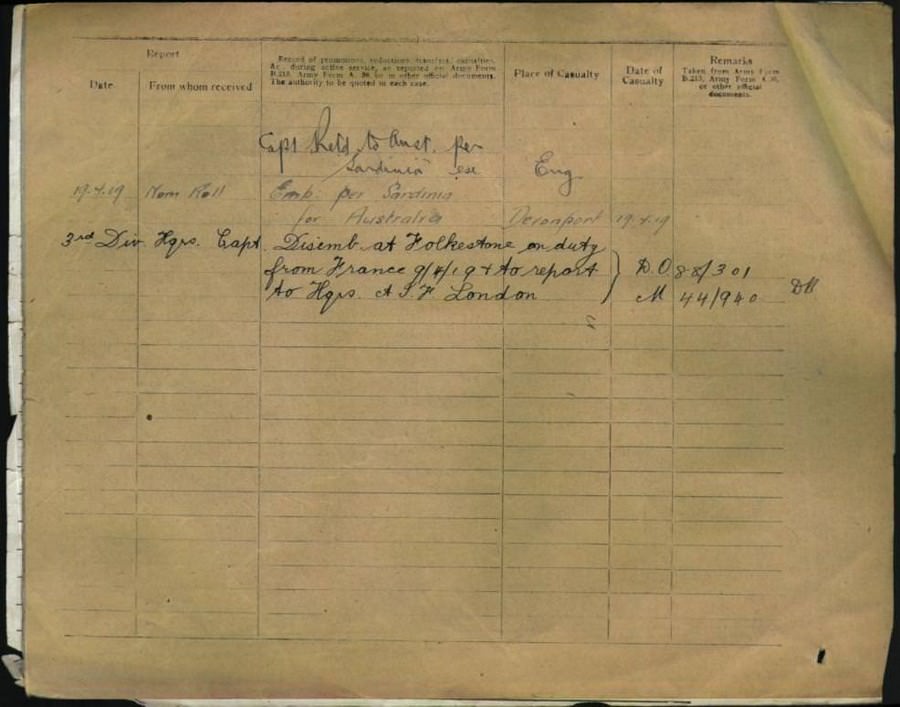 Report
Date.
From whom received
Record of promotions, reductions, transfers, casualties,
&c., during active service, as reported on Army Form
B.213, Army Form A. 36, or in other official documents.
The authority to be quoted in each case.
Place of Casualty
Date of
Casualty
Remarks
Taken from Army Form
B.213, Army Form A.36,
or other official
documents.
Capt Retd to Aust. per
"Sardinia"
Eng
19.4.19 Nom Roll Emb. per Sardinia
for Australia Devonport 19.4.19
3rd Div Hqrs. Capt. Disemb. at Folkestone on duty
from France 9/4/19 & to report } D.O. 88/301
to Hqrs. A I F London M 44/940